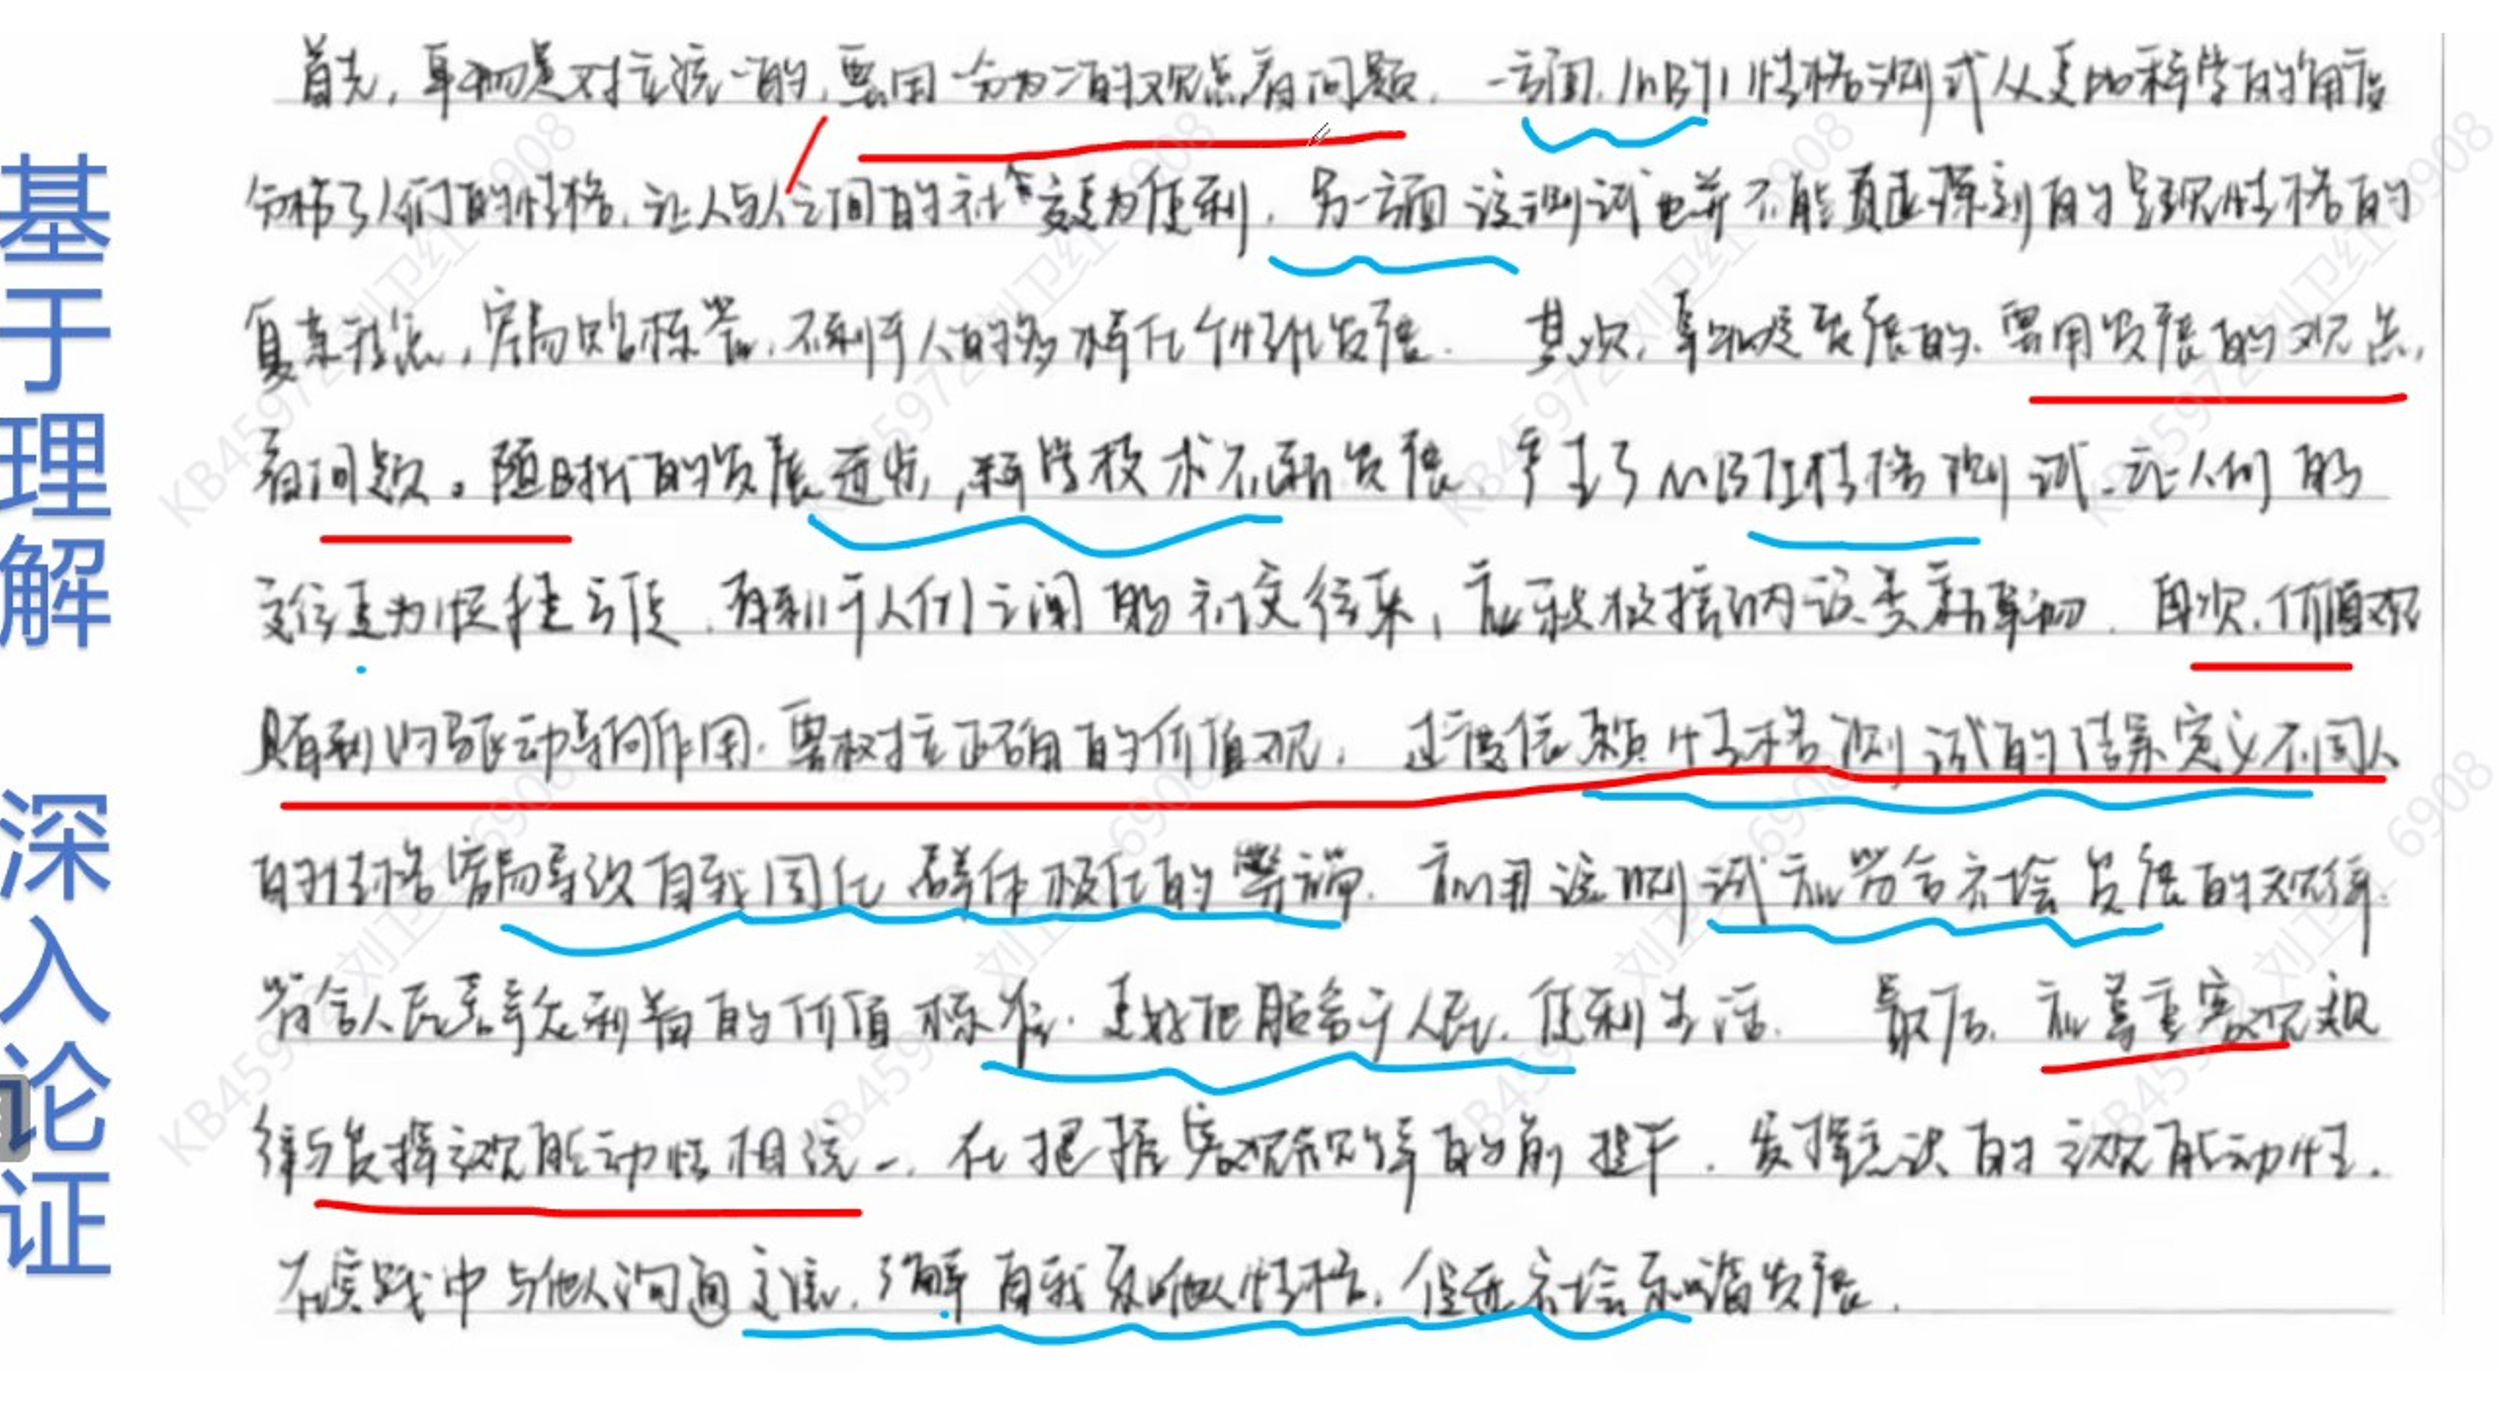 基于理解 深入论证
首先,事物是对立统一的,要用一分为二的观点看问题。一方面,MBTI性格测试从更加科学的角度
分析了人们的性格,让人与人之间的社会交更为便利。另一方面该测试也并不能真正深刻的呈现性格的
复杂形态,容易贴标签,不利于人的多样化个性化发展。其次,事物是发展的,要用发展的观点,
看问题。随时代的发展进步,科学技术不断发展,产生了MBTI性格测试,让人们的
交往更为快捷方便,有利于人们之间的社交往来,应积极接纳该类新事物。再次,价值观
具有到的驱动导向作用,要树立正确的价值观。过度信赖性格测试的结果定义不同人
的性格容易导致自我固化群体极化的弊端。应用该测试应符合社会发展的规律,
符合人民群众利益的价值标准,更好地服务于人民,便利生活。最后,应尊重客观规
律与发挥主观能动性相统一,在把握客观规律的前提下,发挥意识的主观能动性,
在实践中与他人沟通交流,了解自我和他人性格,促进社会和谐发展。
KB4597 刘卫红 6908